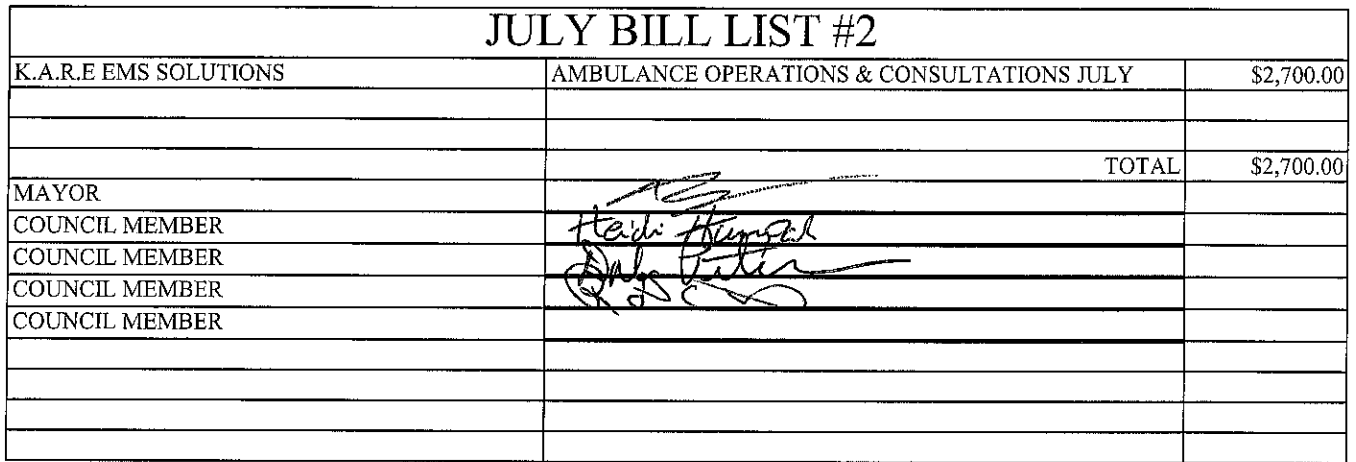 JULY BILL LIST #2
K.A.R.E EMS SOLUTIONS AMBULANCE OPERATIONS & CONSULTATIONS JULY $2,700.00
TOTAL $2,700.00
MAYOR
COUNCIL MEMBER Heidi
COUNCIL MEMBER
COUNCIL MEMBER
COUNCIL MEMBER